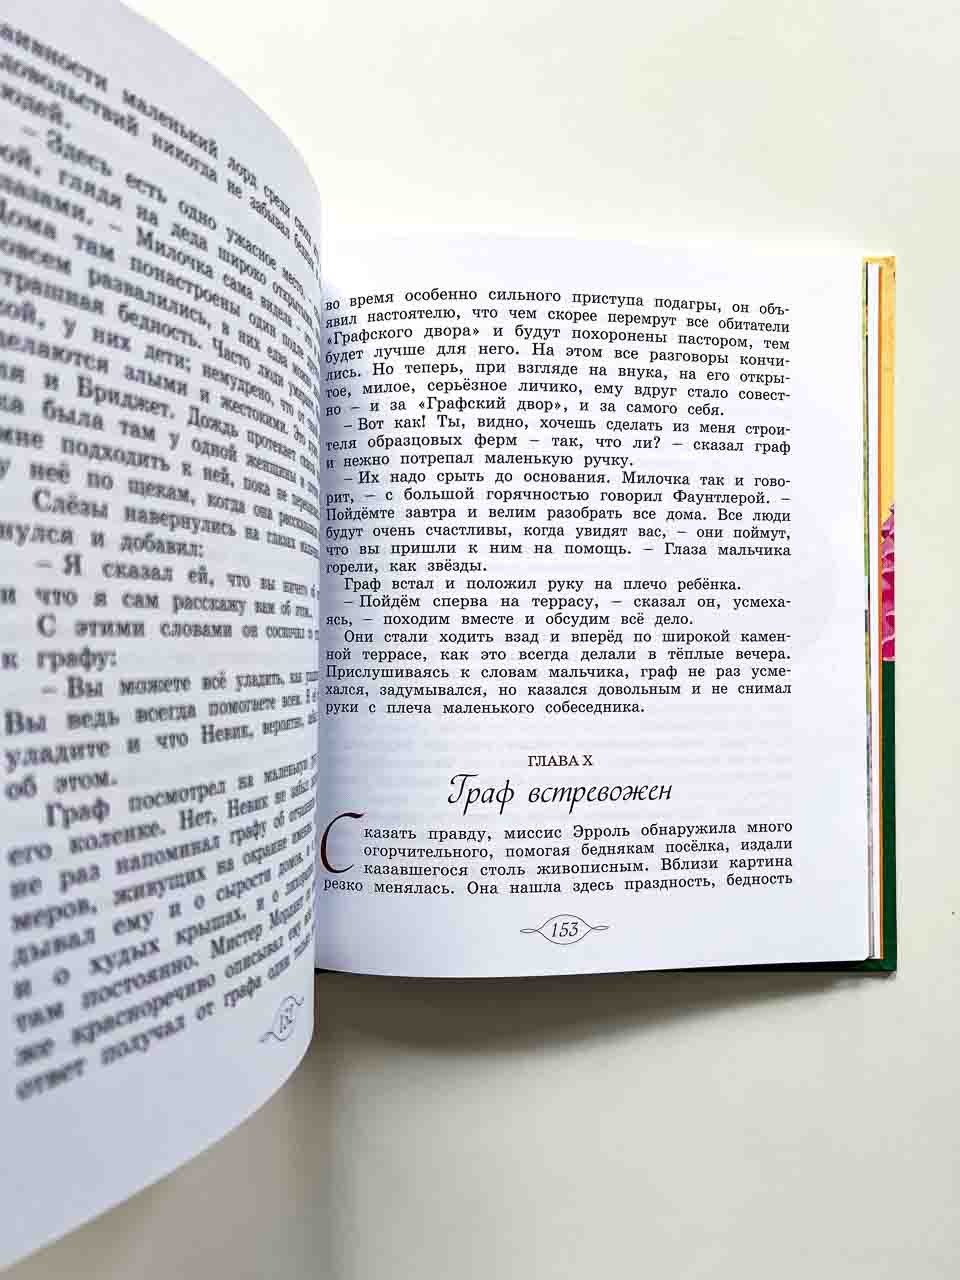 аивности маленький лорд среди своих
довольствий никогда не забывал бедных
людей.
– Здесь есть одно ужасное место, –
рой, глядя на деда широко открытыми
лазами. – Милочка сама видела –
Дома там понастроены один подле
совсем развалились, в них едва можно
страшная бедность. Часто люди умирают
кой, у них дети; немудрено, что от
делаются злыми и жестокими. Это
ля и Бриджет. Дождь протекает сквозь
ка была там у одной женщины и
мне подходить к ней, пока не
у неё по щекам, когда она рассказывала
Слёзы навернулись на глазах
нулся и добавил:
– Я сказал ей, что вы ничего об
и что я сам расскажу вам об этом.
С этими словами он соскочил
к графу:
– Вы можете всё уладить, как
Вы ведь всегда помогаете всем. Я
уладите и что Невик, вероятно,
об этом.
Граф посмотрел на маленькую
его коленке. Нет, Невик не забыл
не раз напоминал графу об отчаянном
меров, живущих на окраине
дывал ему и о сырости домов,
и о худых крышах, и о лихорадке
там постоянно. Мистер Мордант
же красноречиво описывал ему
ответ получал от графа один только
152
во время особенно сильного приступа подагры, он объ-
явил настоятелю, что чем скорее перемрут все обитатели
«Графского двора» и будут похоронены пастором, тем
будет лучше для него. На этом все разговоры кончи-
лись. Но теперь, при взгляде на внука, на его откры-
тое, милое, серьёзное личико, ему вдруг стало совест-
но – и за «Графский двор», и за самого себя.
– Вот как! Ты, видно, хочешь сделать из меня строи-
теля образцовых ферм – так, что ли? – сказал граф
и нежно потрепал маленькую ручку.
– Их надо срыть до основания. Милочка так и гово-
рит, – с большой горячностью говорил Фаунтлерой. –
Пойдёмте завтра и велим разобрать все дома. Все люди
будут очень счастливы, когда увидят вас, – они поймут,
что вы пришли к ним на помощь. – Глаза мальчика
горели, как звёзды.
Граф встал и положил руку на плечо ребёнка.
– Пойдём сперва на террасу, – сказал он, усмеха-
ясь, – походим вместе и обсудим всё дело.
Они стали ходить взад и вперёд по широкой камен-
ной террасе, как это всегда делали в тёплые вечера.
Прислушиваясь к словам мальчика, граф не раз усме-
хался, задумывался, но казался довольным и не снимал
руки с плеча маленького собеседника.
ГЛАВА X
Граф встревожен
Сказать правду, миссис Эрроль обнаружила много
огорчительного, помогая беднякам посёлка, издали
казавшегося столь живописным. Вблизи картина
резко менялась. Она нашла здесь праздность, бедность
153